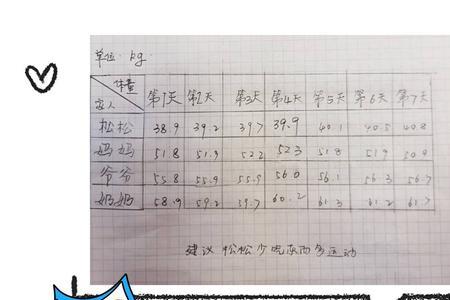 单位：kg
体重
家人 第1天 第2天 第3天 第4天 第5天 第6天 第7天
松松 38.9 39.2 39.7 39.9 40.1 40.5 40.8
妈妈 51.8 51.9 52.2 52.3 51.8 51.9
爷爷 55.8 55.9 55.9 56.0 56.1 56.3 56.7
奶奶 58.9 59.2 59.7 60.2 61.3 61.2 61.7
建议 松松少吃东西多运动